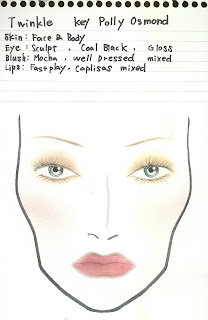 Twinkle key Polly Osmond
Skin: Face & Body
Eye: Sculpt, Coal Black, Gloss
Blush: Mocha, well Dressed mixed
Lips: Fastplay, Caplisas mixed